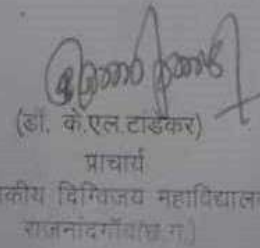 (डॉ. के.एल.टाडेकर)
प्राचार्य
कीय दिग्विजय महाविद्याल
राजनांदगाँव(छ.ग.)